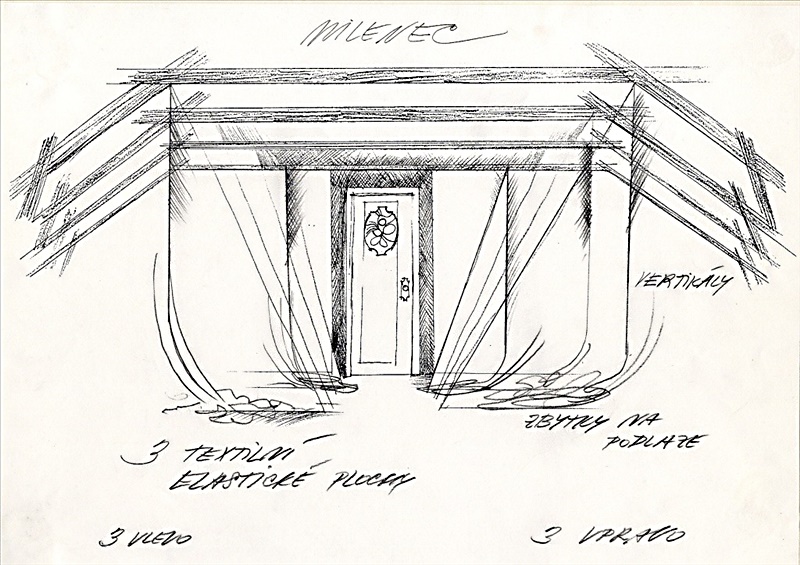 MILENEC
VERTIKÁLY
ZBYTKY NA
PODLAZE
3 TEXTILNÍ
ELASTICKÉ PLOCHY
3 VLEVO
3 VPRAVO